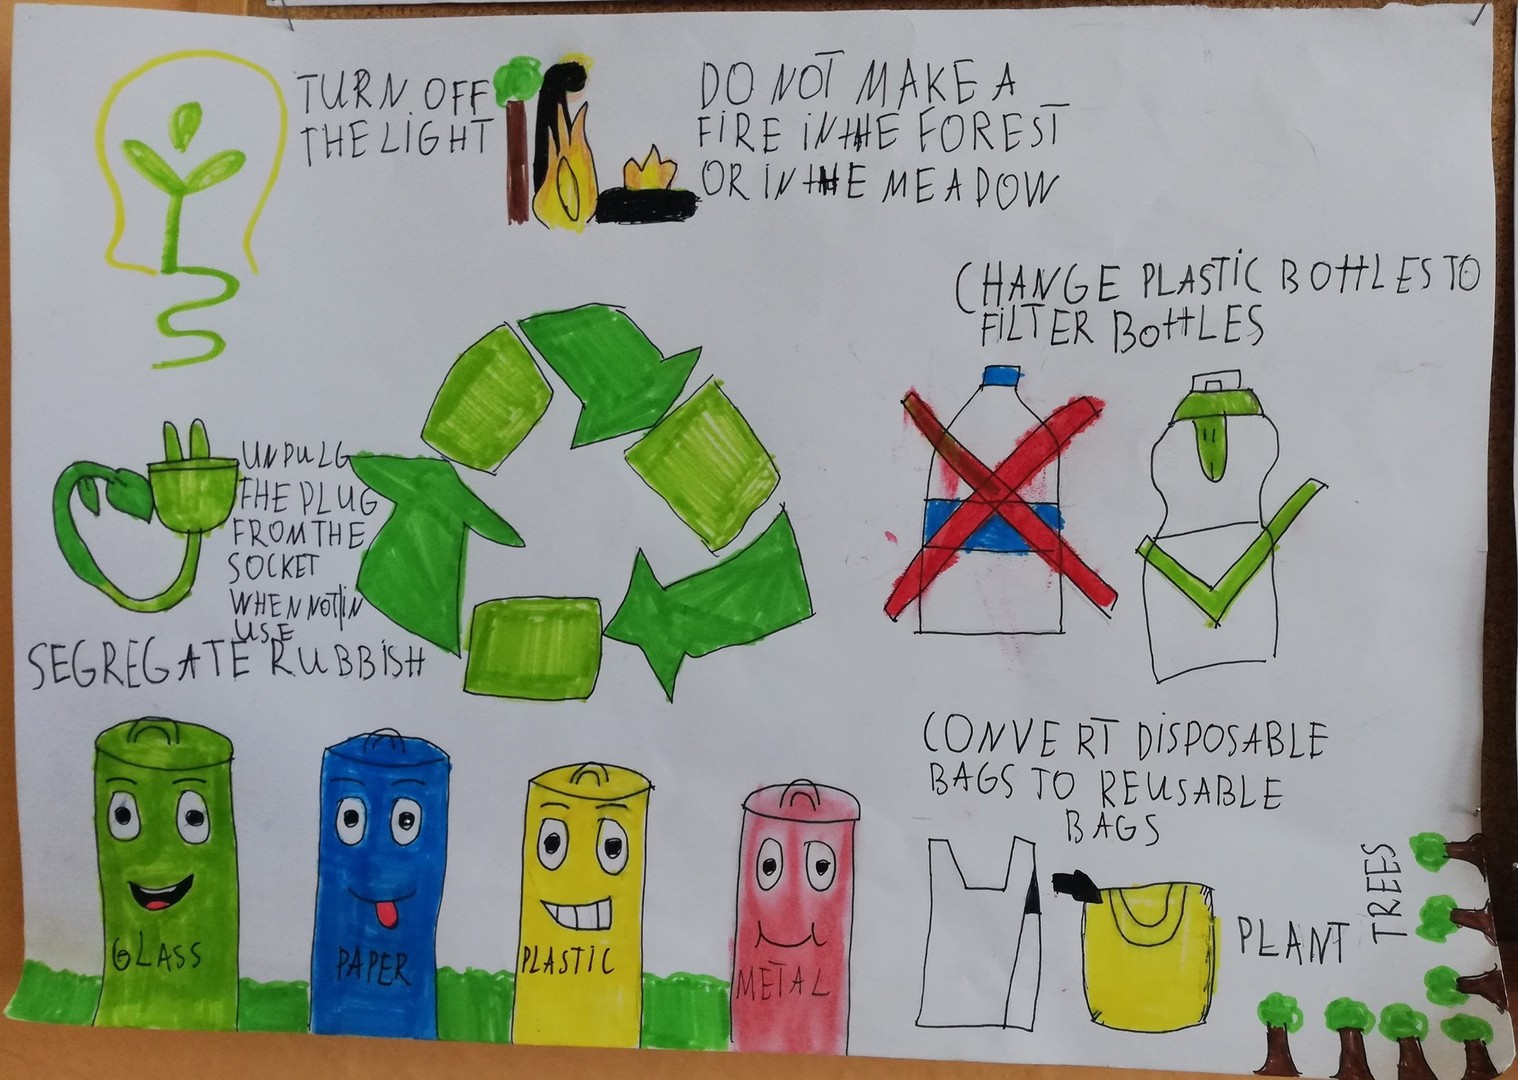 TURN OFF
THE LIGHT
DO NOT MAKE A
FIRE IN THE FOREST
OR IN THE MEADOW
CHANGE PLASTIC BOTTLES TO
FILTER BOTTLES
UNPULG
THE PLUG
FROM THE
SOCKET
WHEN NOT IN
USE
SEGREGATE RUBBISH
GLASS
PAPER
PLASTIC
METAL
CONVERT DISPOSABLE
BAGS TO REUSABLE
BAGS
PLANT
TREES